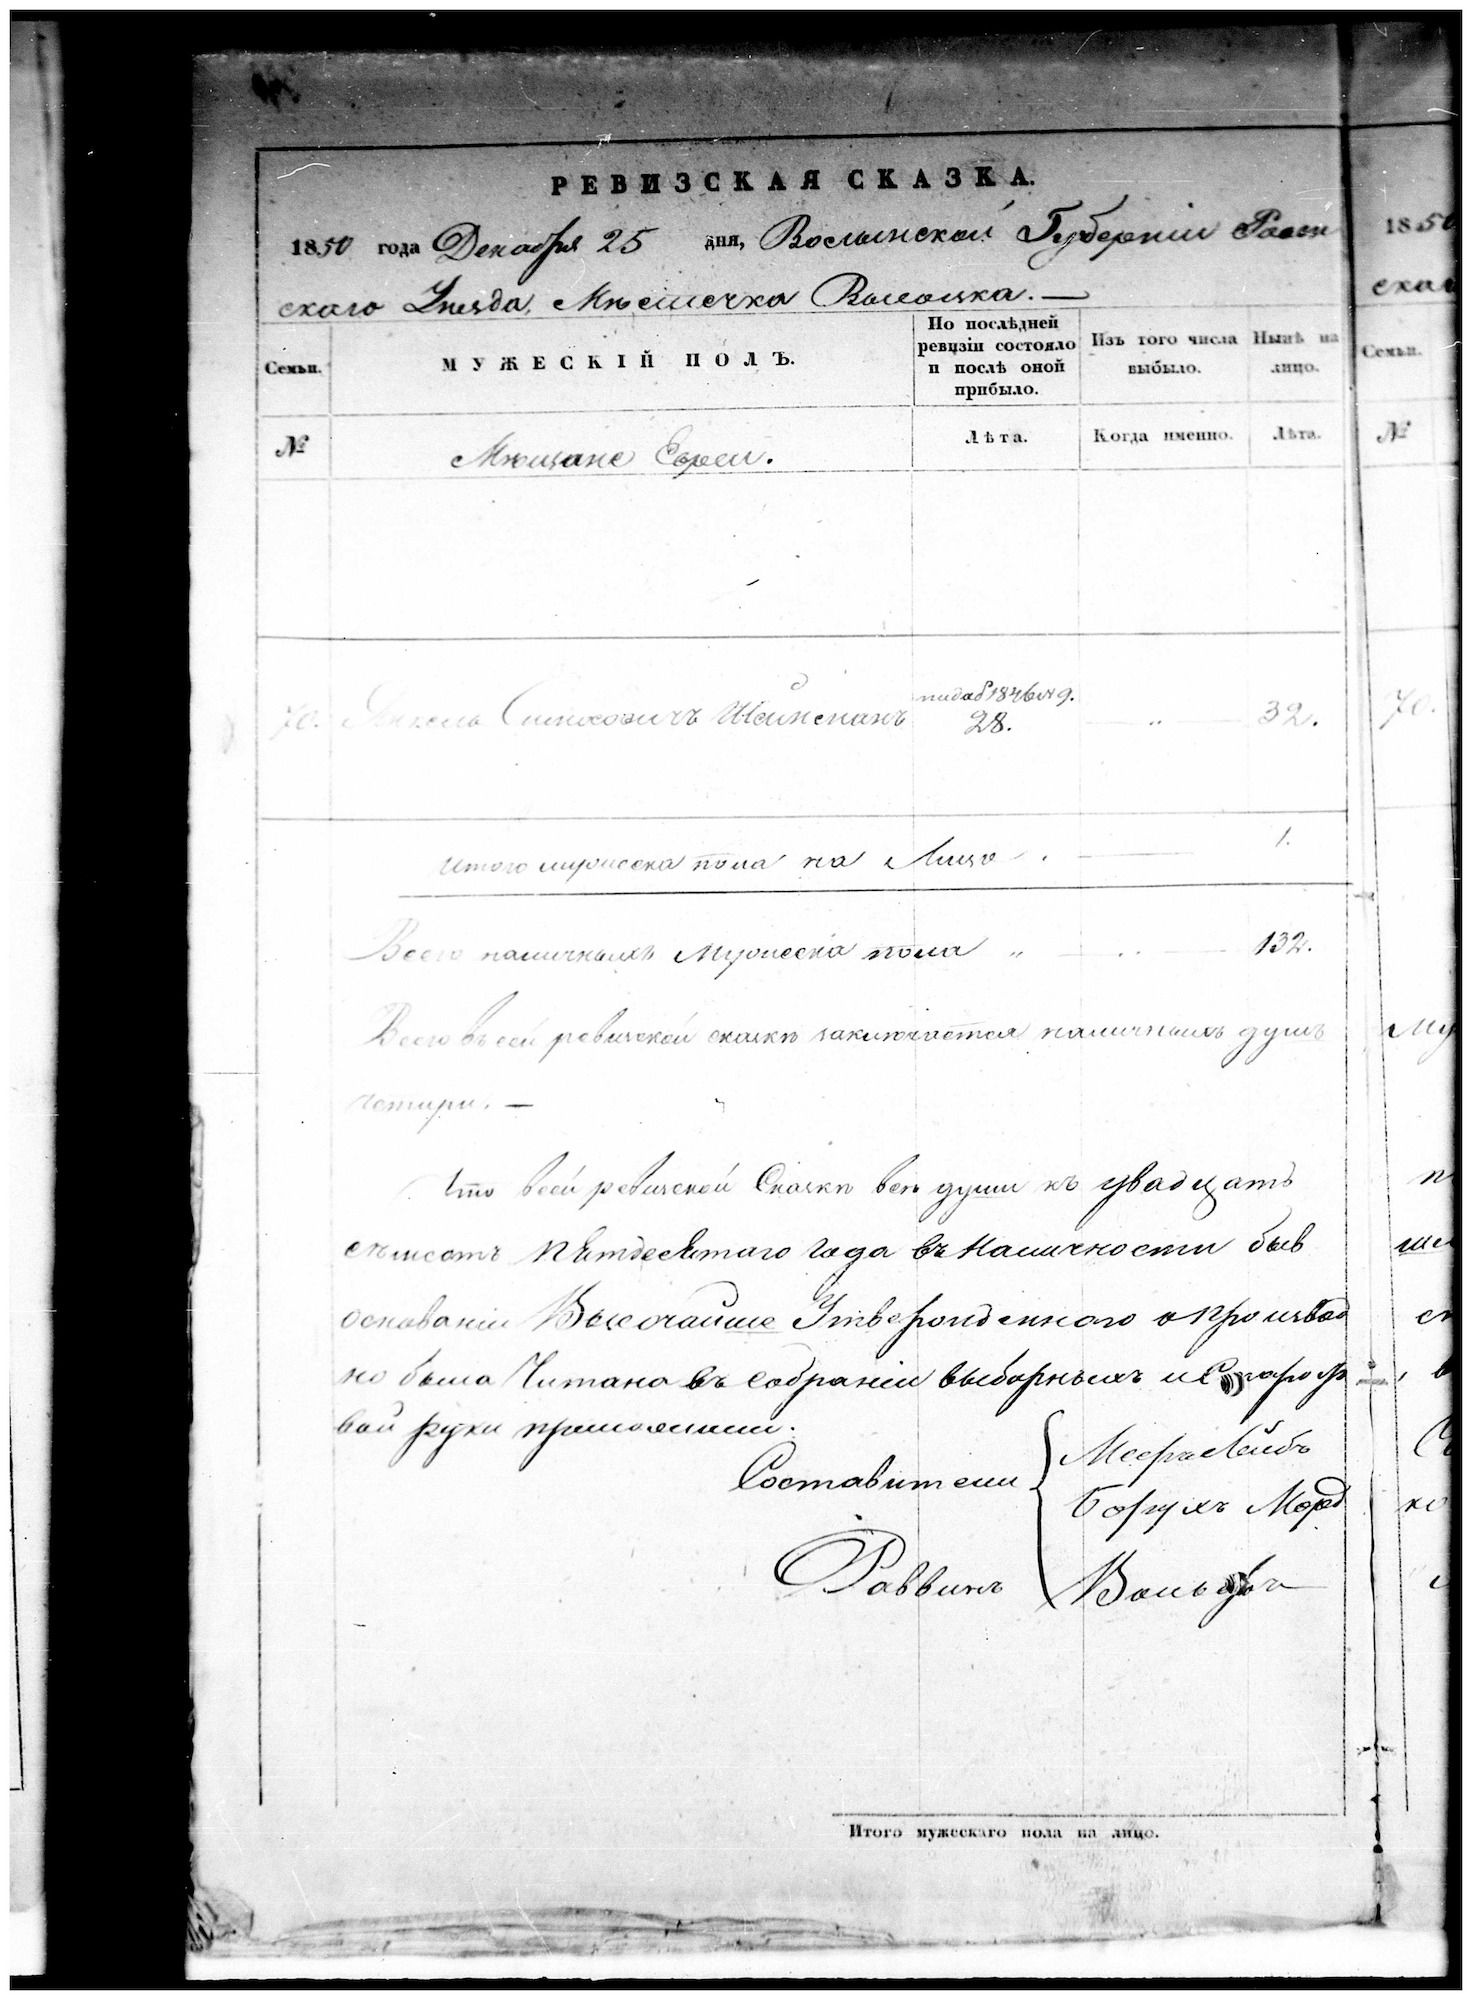 РЕВИЗСКАЯ СКАЗКА.
1850 года Декабря 25 дня, Волынской Губерніи Ровен
скаго Уѣзда, Мѣстечка Высоцка. —
Семьи.
МУЖЕСКІЙ ПОЛЪ.
По послѣдней ревизіи состояло и послѣ оной прибыло.
Изъ того числа выбыло.
Нынѣ на лицо.
№
Мѣщане Евреи.
Лѣта.
Когда именно.
Лѣта.
70. Янкель Шейнманъ
1846 № 9.
28. „ 32.
Итого мужеска пола на Лицо . — 1.
Всего наличныхъ Мужеска пола „ — .. — 132.
Всего въ сей ревизской сказкѣ заключается наличныхъ душъ
четыри. —
Что всей ревизской Сказкѣ всѣ души къ двадцать
съисотъ пятдесятаго года въ Наличности быв
основаніи Высочайше Утвержденнаго о производ
но была Читана въ собраніи выборныхъ и
вой руки приложили.
Составители
Мееръ Лейбъ
Борухъ Морд
Раввинъ
Вольфъ
Итого мужескаго пола на лицо.
1850
скаго
Семьи.
№
70.
Му